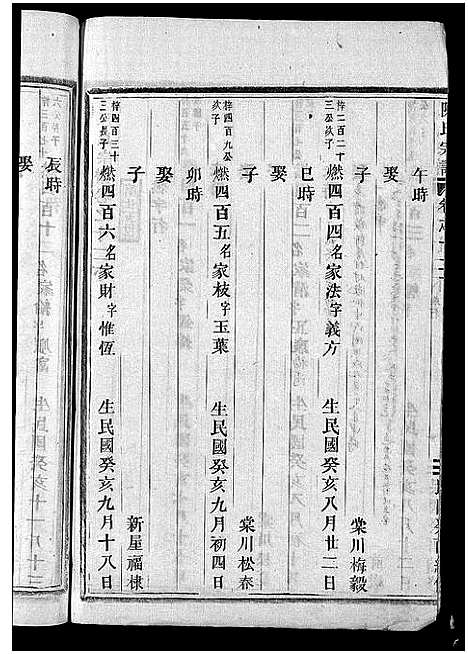 午時
娶
子
棠川梅毅
梓二百二十三公欽子
燃四百四名家法字義方 生民國癸亥八月廿二日
巳時
娶
子
棠川松春
梓四百九公欽子
燃四百五名家枝字玉葉 生民國癸亥九月初四日
卯時
娶
子
新屋福棣
梓四百三十三公長子
燃四百六名家財字惟恆 生民國癸亥九月十八日
辰時
娶